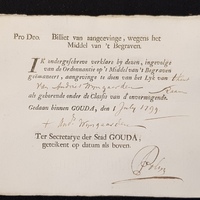 Pro Deo. Billiet van aangeevinge, wegens het
Middel van 't Begraven.
IK ondergeschreve verklare by dezen, ingevolge
van de Ordonnantie op 't Middel van 't Begraven
geëmaneert, aangeevinge te doen van het Lyk van
van
als gehorende onder de Classis van d'onvermogende.
Gedaan binnen GOUDA, den 1 July 1799
Ter Secretarye der Stad GOUDA,
geteikent op datum als boven.